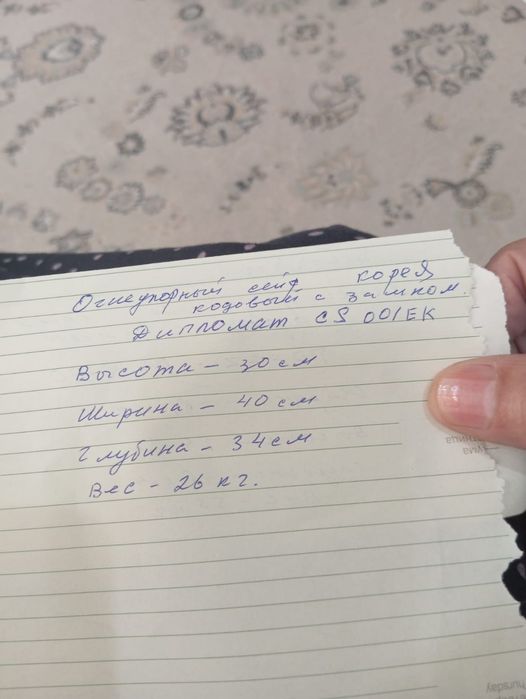 Огнеупорный сейф Корея
кодовый с замком.
Дипломат CS 001EK
Высота - 30 см
Ширина - 40 см
Глубина - 34 см
Вес - 26 кг.
ница
hursday